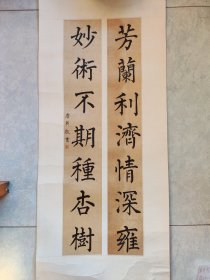 芳蘭利濟情深雍
妙術不期種杏樹